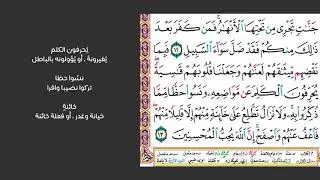 جَنَّـٰتٍ تَجْرِى مِن تَحْتِهَا ٱلْأَنْهَـٰرُ فَمَن كَفَرَ بَعْدَ
ذَٰلِكَ مِنكُمْ فَقَدْ ضَلَّ سَوَآءَ ٱلسَّبِيلِ ١٢ فَبِمَا
نَقْضِهِم مِّيثَـٰقَهُمْ لَعَنَّـٰهُمْ وَجَعَلْنَا قُلُوبَهُمْ قَـٰسِيَةً
يُحَرِّفُونَ ٱلْكَلِمَ عَن مَّوَاضِعِهِۦ وَنَسُوا۟ حَظًّا مِّمَّا
ذُكِّرُوا۟ بِهِۦ وَلَا تَزَالُ تَطَّلِعُ عَلَىٰ خَآئِنَةٍ مِّنْهُمْ إِلَّا قَلِيلًا مِّنْهُمْ
فَٱعْفُ عَنْهُمْ وَٱصْفَحْ إِنَّ ٱللَّهَ يُحِبُّ ٱلْمُحْسِنِينَ ١٣
يُحرفون الكلم
يُغيرونهُ . أو يُؤولونه بالباطل
نسُوا حظا
تركوا نصيبا وافرا
خائنة
خيانة وغدر . أو فعلة خائنة